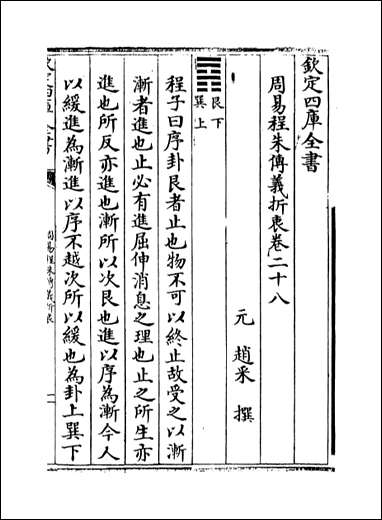 欽定四庫全書
周易程朱傳義折衷卷二十八
元 趙采 撰
艮下
巽上
程子曰序卦艮者止也物不可以終止故受之以漸
漸者進也止必有進屈伸消息之理也止之所生亦
進也所反亦進也漸所以次艮也進以序為漸今人
以緩進為漸進以序不越次所以緩也為卦上巽下
周易程朱傳義折衷